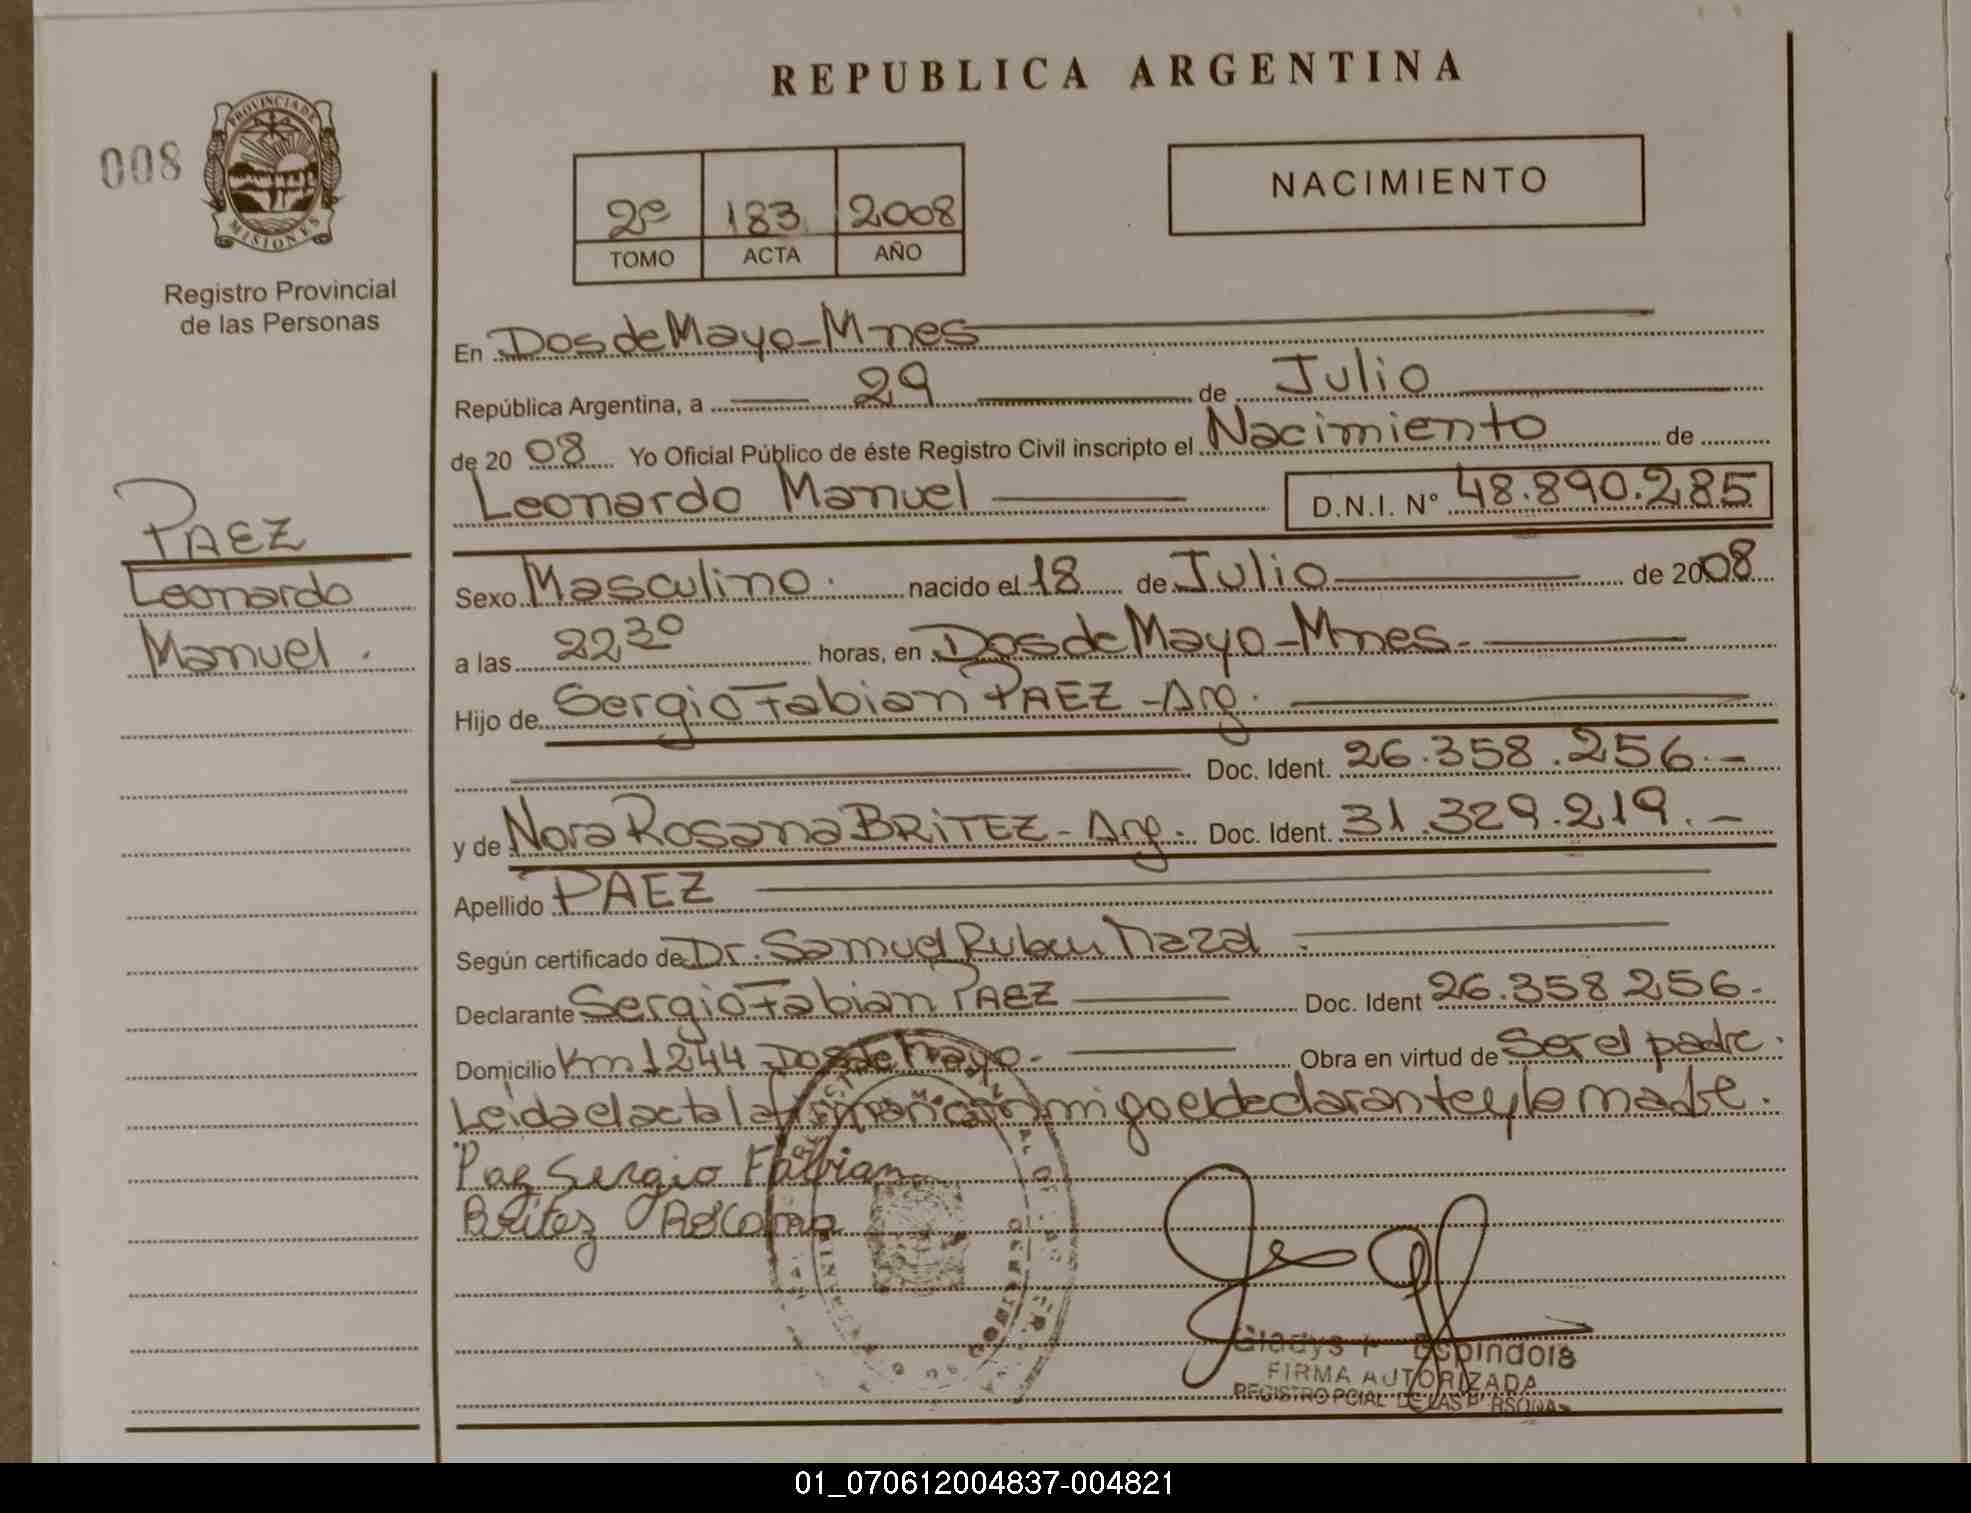 REPUBLICA ARGENTINA
008
PROVINCIA DE
MISIONES
Registro Provincial
de las Personas
2º 183 2008
TOMO ACTA AÑO
NACIMIENTO
PAEZ
Leonardo
Manuel.
En Dos de Mayo-Mnes
República Argentina, a 29 de Julio
de 2008 Yo Oficial Público de éste Registro Civil inscripto el Nacimiento de
Leonardo Manuel D.N.I. N° 48.890.285
Sexo Masculino. nacido el 18 de Julio de 2008
a las 22,30 horas, en Dos de Mayo-Mnes.
Hijo de Sergio Fabian PAEZ-Arg.
Doc. Ident. 26.358.256.-
y de Nora Rosana BRITEZ-Arg. Doc. Ident. 31.329.219.-
Apellido PAEZ
Según certificado de Dr. Samuel Ruben
Declarante Sergio Fabian PAEZ Doc. Ident 26.358 256.
Domicilio Km 1244 Dos de Mayo. Obra en virtud de Ser el padre.
Leida el acta la firman conmigo el declarante y la madre.
Paez Sergio Fabian
Britez
Gladys Espindola
FIRMA AUTORIZADA
REGISTRO PCIAL DE LAS PERSONAS
01_070612004837-004821